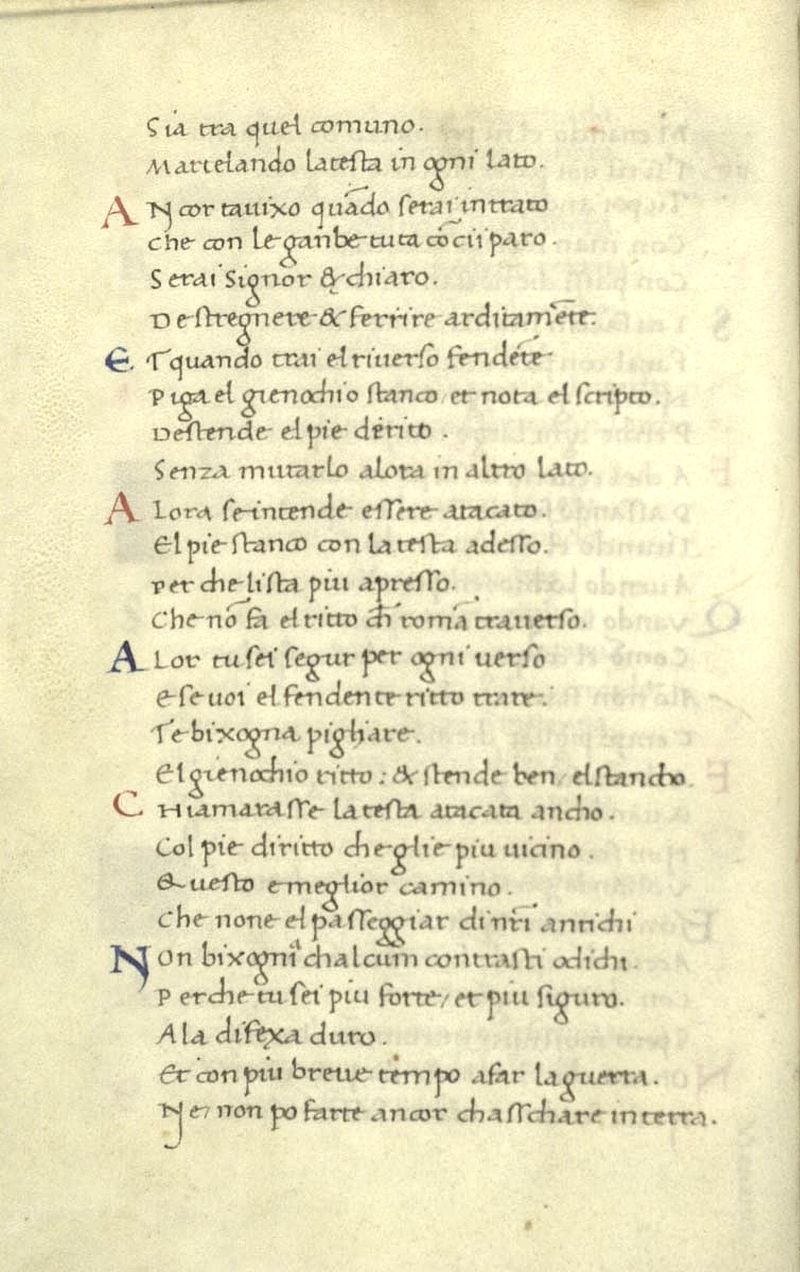 Sia tra quel comuno.
Martelando la testa in ogni lato.
ANcor tauixo quãdo serai intrato
che con le gãnbe tuta cõcii paro.
Serai Signor & chiaro.
De stregnere & ferrire arditamẽte.
ET quando trai el riuerso fendẽte
Piga el gienochio stanco et nota el scripto.
Destende el pie deritto.
Senza mutarlo alora in altro lato.
ALora se intende essere atacato.
El pie stanco con la testa adesso.
Per che li sta piu apresso.
Che nõ fa el ritto chi romã trauerso.
ALor tu sei segur per ogni uerso
e se uoi el fendente ritto trare.
Te bixogna pigliare.
El gienochio ritto: & stende ben / el stancho
CHiamarasse la testa atacata ancho.
Col pie diritto che glie piu uicino.
Questo e meglior camino.
Che none el passeggiar di nr̃i antichi
NOn bixogni chalcum contrasti o dichi.
Perche tu sei piu forte / et piu siguro.
A la difexa duro.
Et con piu breue tempo a far la guerra.
Ne / non po farte ancor chasschare in terra.